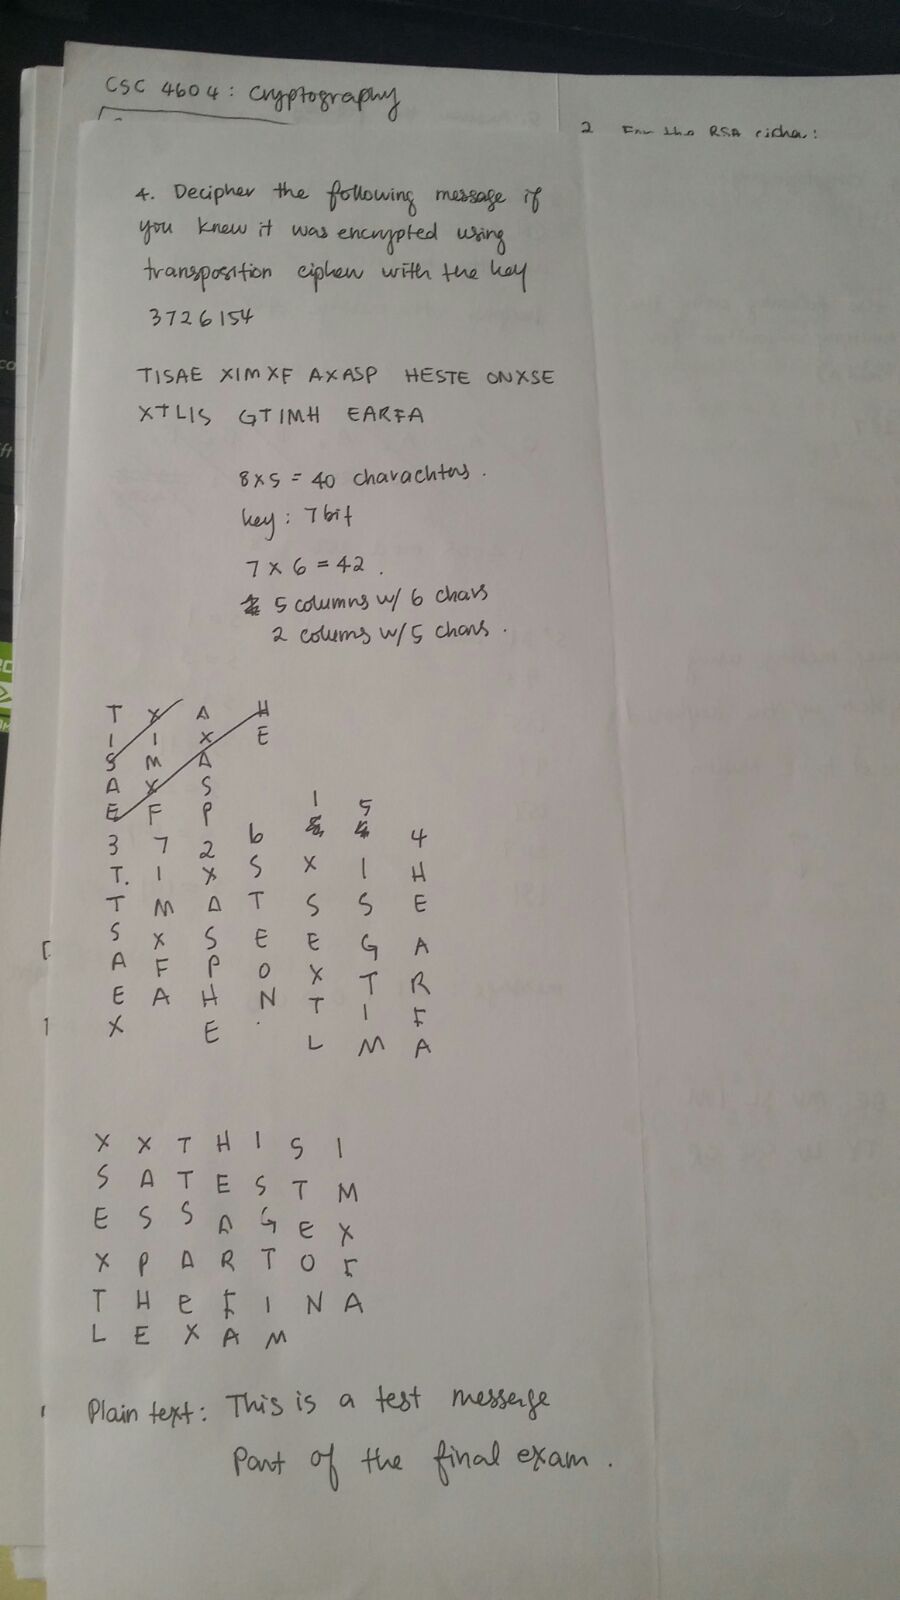 CSC 4604: Cryptography
2 For the RSA cipher:
4. Decipher the following message if
you knew it was encrypted using
transposition cipher with the key
3726154
TISAE XIMXF AXASP HESTE ONXSE
XTLIS GTIMH EARFA
8x5 = 40 charachters.
key: 7 bit
7 x 6 = 42.
5 columns w/ 6 chars
2 colums w/ 5 chars.
T X A H
I I X E
S M A
A X S
E F P
1 5
3 7 2 6 4
T. I X S X I H
T M A T S S E
S X S E E G A
A F P O X T R
E A H N T I F
X E L M A
X X T H I S I
S A T E S T M
E S S A G E X
X P A R T O F
T H E F I N A
L E X A M
Plain text: This is a test messerge
Part of the final exam.